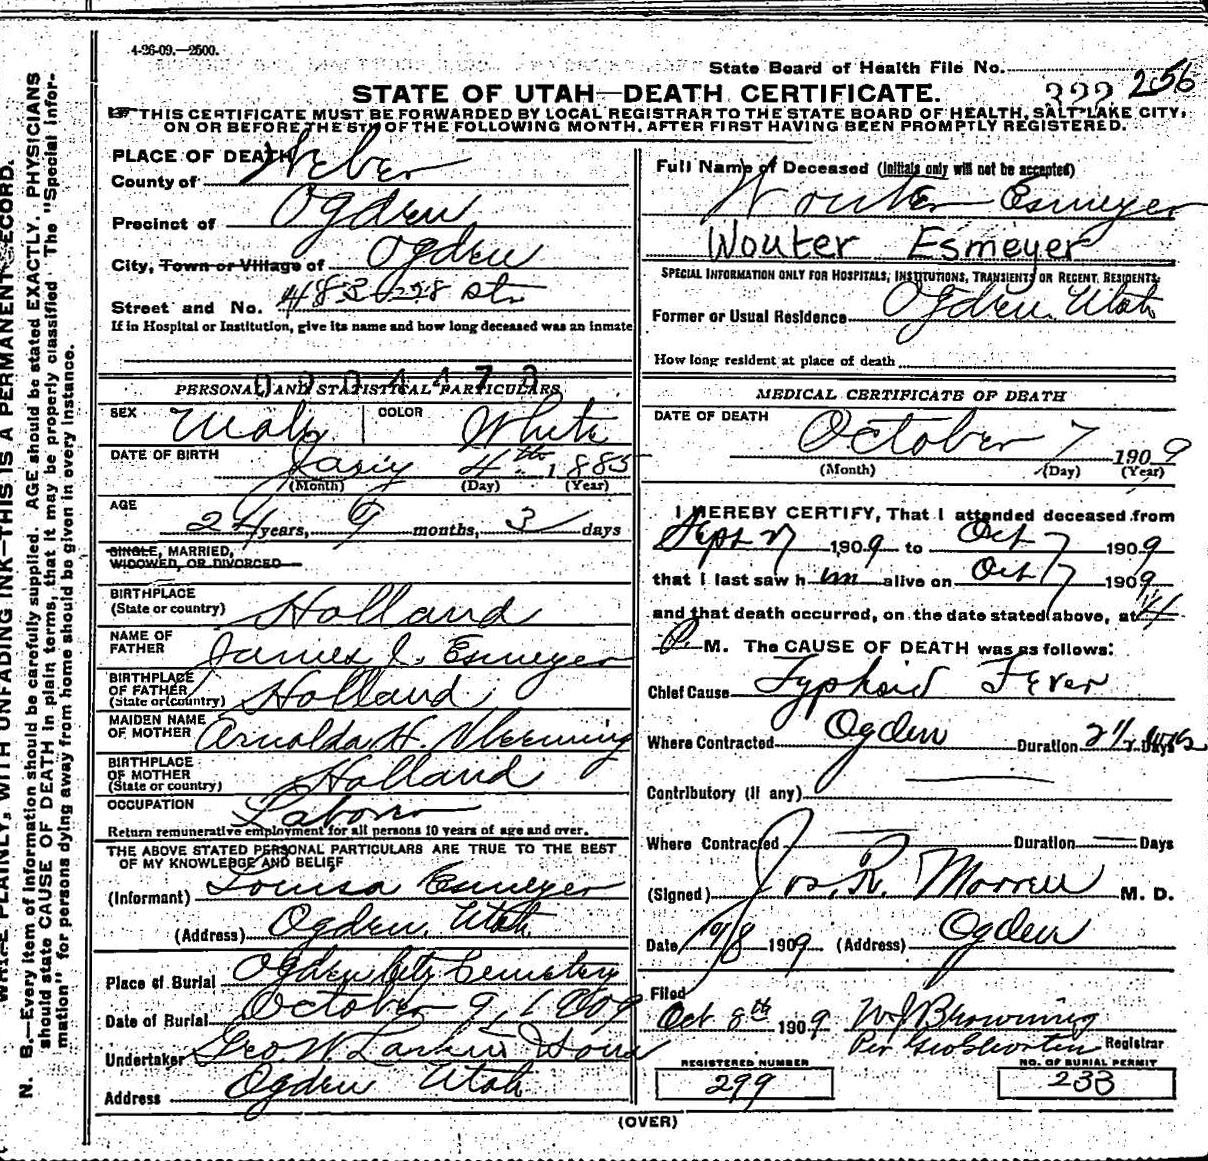 4-26-09.—2500.
State Board of Health File No.
322 256
STATE OF UTAH—DEATH CERTIFICATE.
THIS CERTIFICATE MUST BE FORWARDED BY LOCAL REGISTRAR TO THE STATE BOARD OF HEALTH, SALT LAKE CITY,
ON OR BEFORE THE 5TH OF THE FOLLOWING MONTH, AFTER FIRST HAVING BEEN PROMPTLY REGISTERED.
PLACE OF DEATH
County of Weber
Precinct of Ogden
City, Town or Village of Ogden
Street and No. 483 - 28 St.
If in Hospital or Institution, give its name and how long deceased was an inmate
PERSONAL AND STATISTICAL PARTICULARS
SEX Male COLOR White
DATE OF BIRTH 4th 1885
(Month) (Day) (Year)
AGE
24 years, 9 months, 3 days
SINGLE, MARRIED,
WIDOWED, OR DIVORCED
BIRTHPLACE
(State or country) Holland
NAME OF
FATHER James I. Esmeyer
BIRTHPLACE
OF FATHER
(State or country) Holland
MAIDEN NAME
OF MOTHER Arnolda H. Vleeming
BIRTHPLACE
OF MOTHER
(State or country) Holland
OCCUPATION Laborer
Return remunerative employment for all persons 10 years of age and over.
THE ABOVE STATED PERSONAL PARTICULARS ARE TRUE TO THE BEST
OF MY KNOWLEDGE AND BELIEF
(Informant) Louisa Esmeyer
(Address) Ogden, Utah
Place of Burial Ogden City Cemetery
Date of Burial October 9, 1909
Undertaker Geo. W. Larkin & Sons
Address Ogden Utah
Full Name of Deceased (Initials only will not be accepted)
Wouter Esmeyer
Wouter Esmeyer
SPECIAL INFORMATION ONLY FOR HOSPITALS, INSTITUTIONS, TRANSIENTS OR RECENT RESIDENTS.
Former or Usual Residence Ogden, Utah
How long resident at place of death
MEDICAL CERTIFICATE OF DEATH
DATE OF DEATH
October 7 1909
(Month) (Day) (Year)
I HEREBY CERTIFY, That I attended deceased from
Sept 27 1909 to Oct 7 1909
that I last saw him alive on Oct 7 1909
and that death occurred, on the date stated above, at
P. M. The CAUSE OF DEATH was as follows:
Chief Cause Typhoid Fever
Where Contracted Ogden Duration 2½ wks Days
Contributory (if any)
Where Contracted Duration Days
(Signed) Jos. R. Morrell M. D.
Date 10/8 1909 (Address) Ogden
Filed
Oct 8th 1909 W J Browning
Per Geo Registrar
REGISTERED NUMBER
299
NO. OF BURIAL PERMIT
233
(OVER)
N. B.—Every item of information should be carefully supplied. AGE should be stated EXACTLY. PHYSICIANS
should state CAUSE OF DEATH in plain terms, that it may be properly classified. The "Special Infor-
mation" for persons dying away from home should be given in every instance.
PLAINLY, WITH UNFADING INK—THIS IS A PERMANENT RECORD.